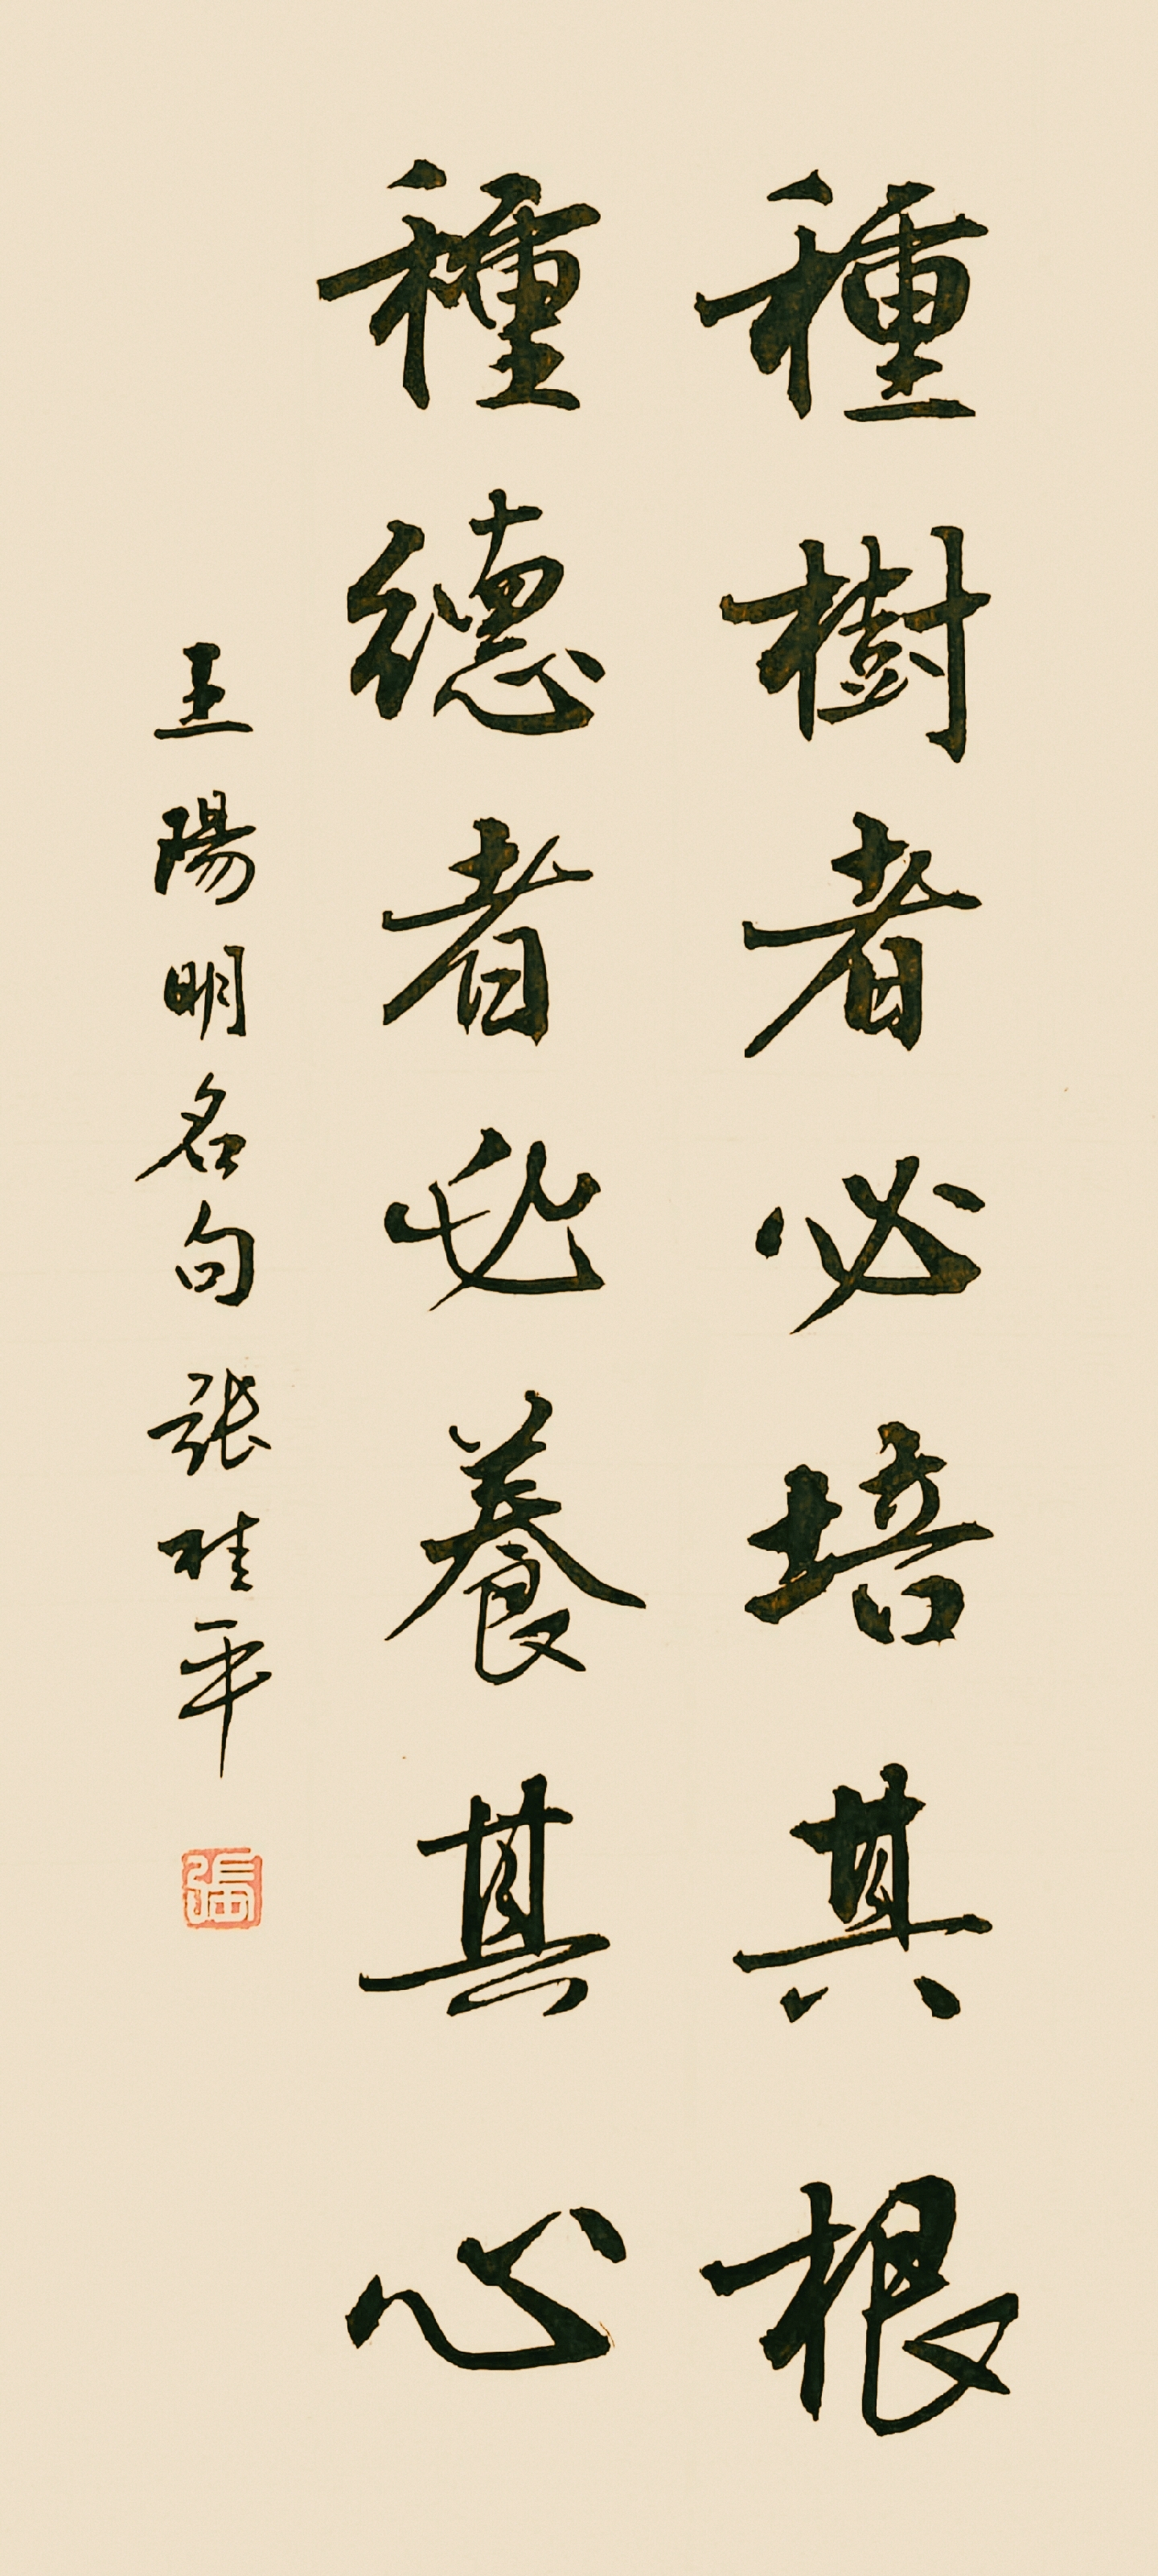 種樹者必培其根
種德者必養其心
王陽明名句 張桂平
張